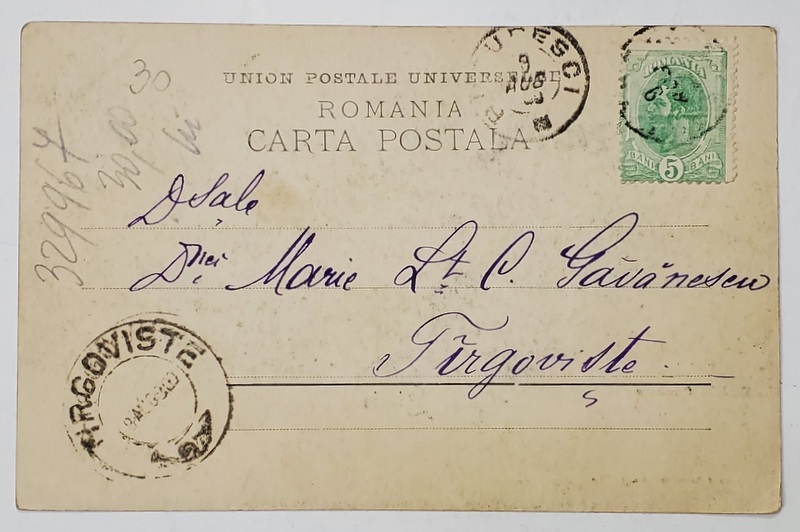 UNION POSTALE UNIVERSELLE
ROMANIA
CARTA POSTALA
BUCURESCI
9
AUG
ROMANIA
BANI 5 BANI
30
30,00
lei
329967
D Sale
Dnei Marie Lt. C. Găvănescu
Tîrgoviște
TIRGOVISTE